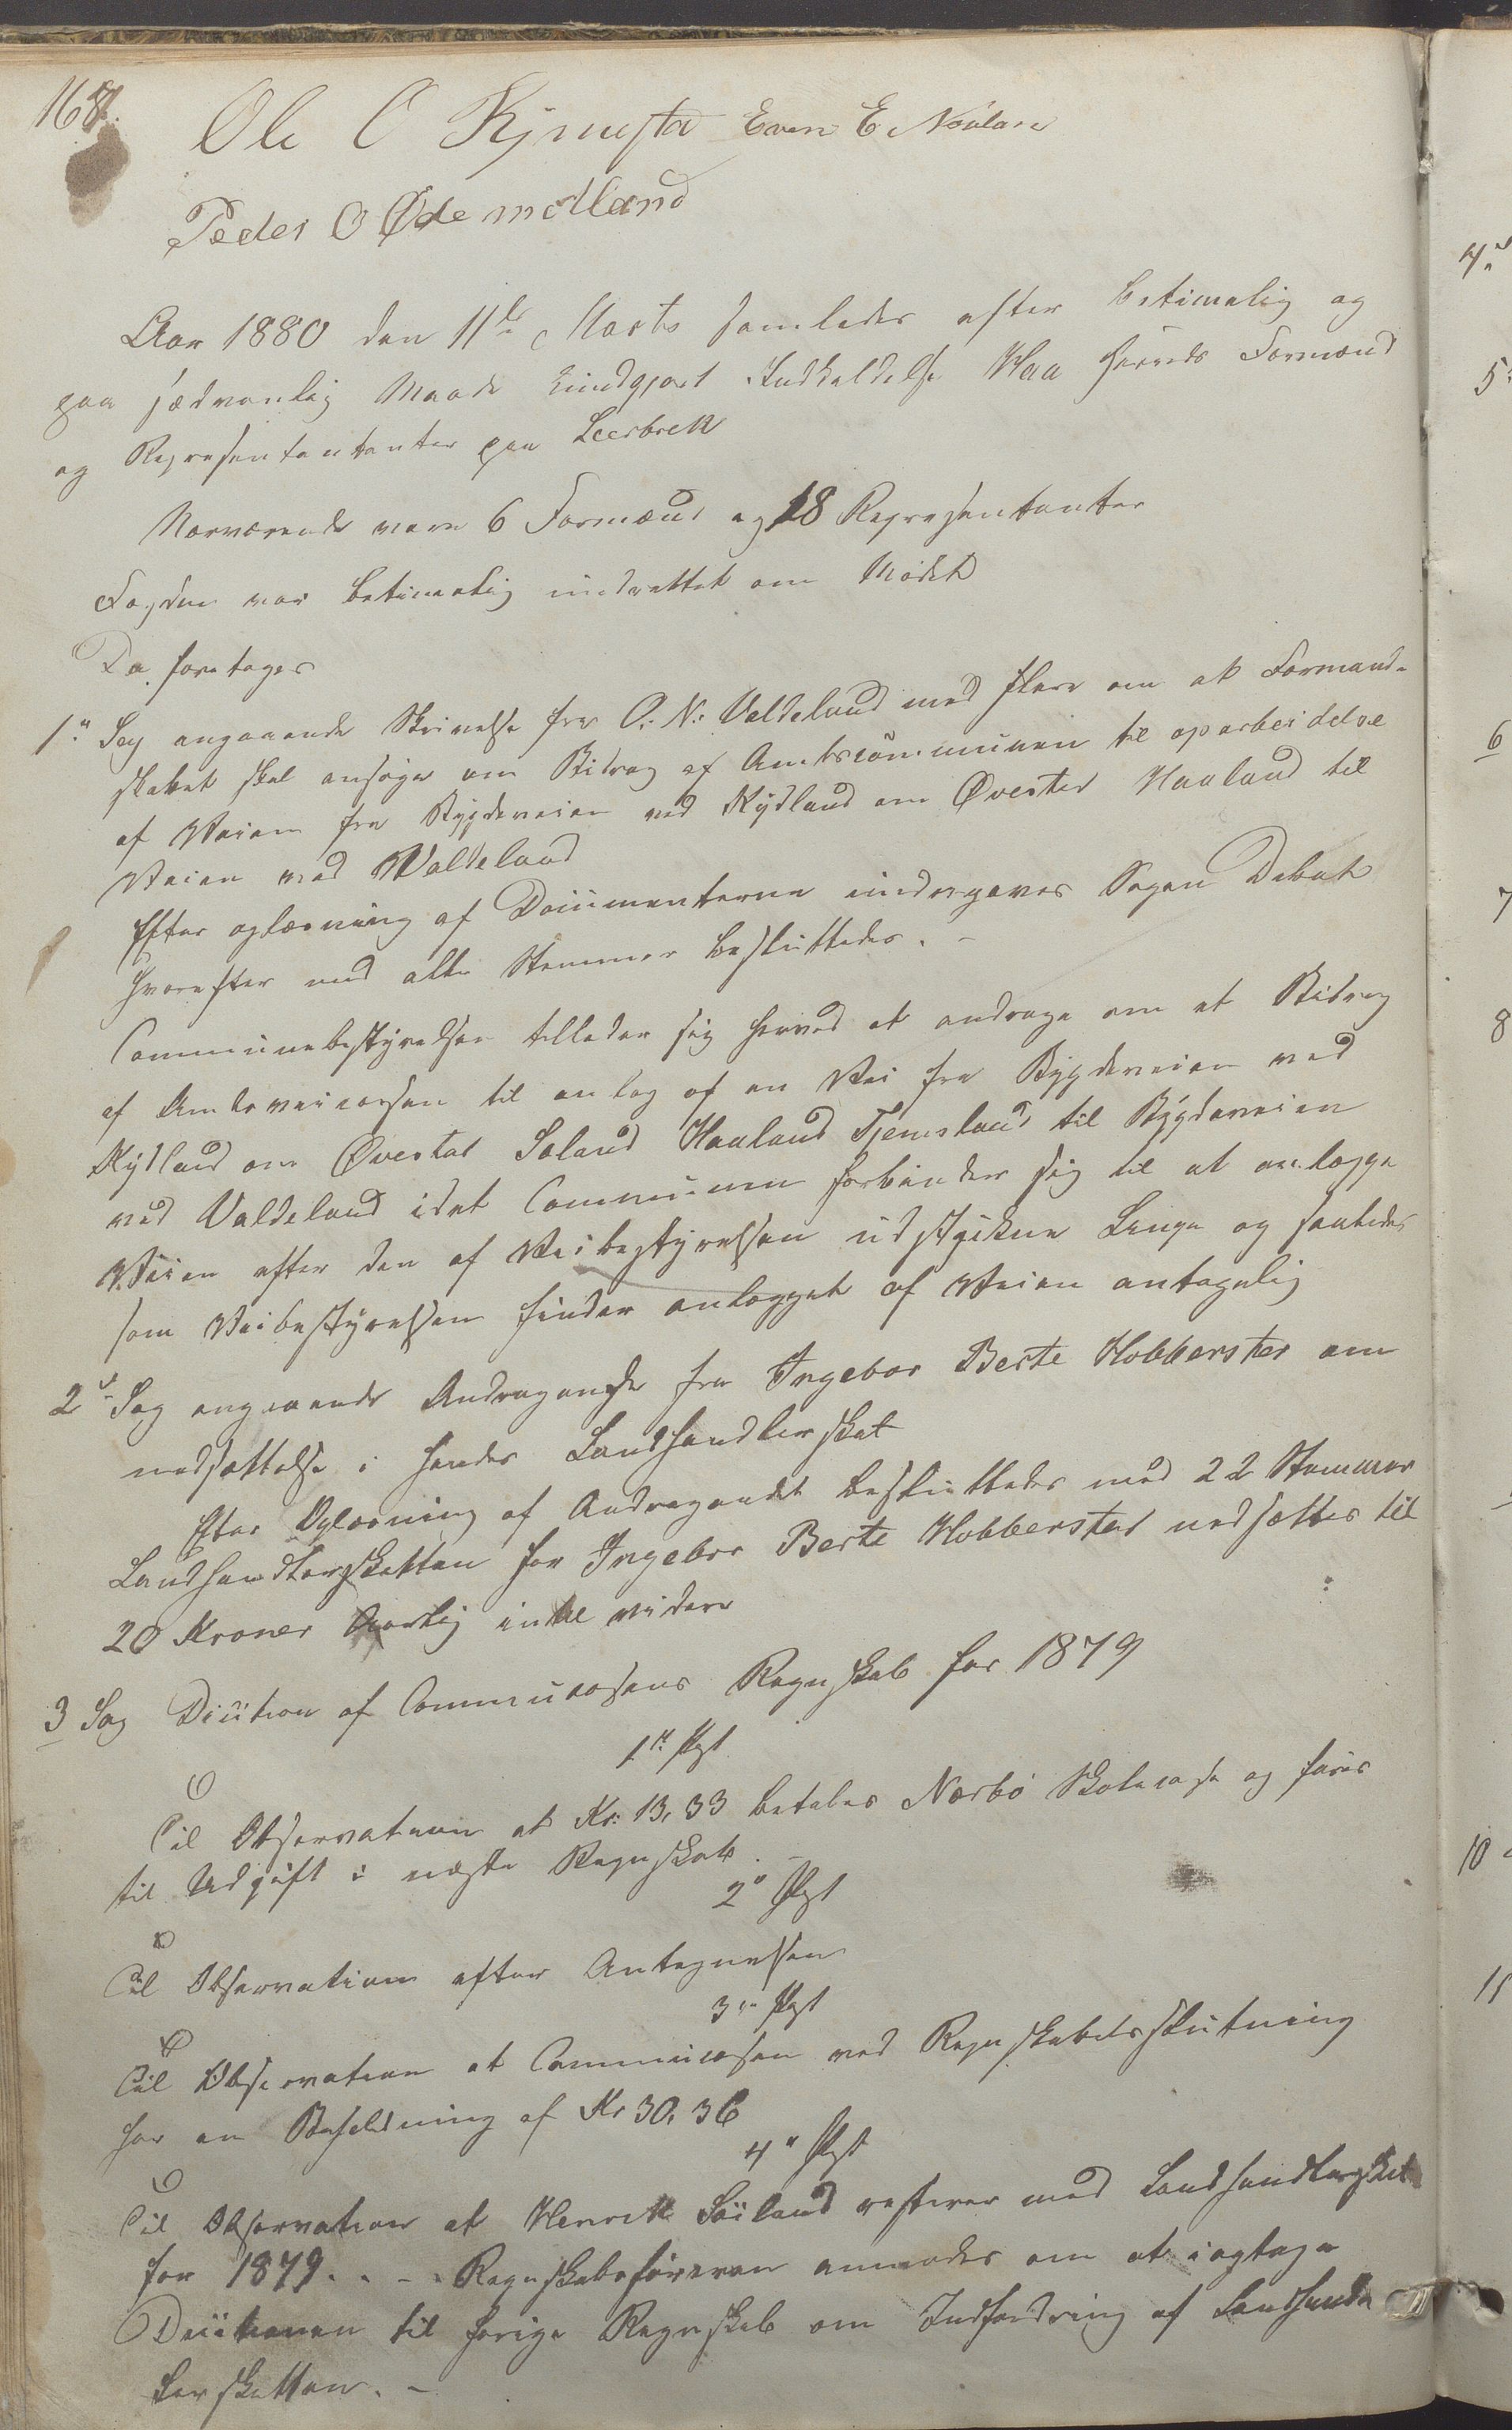 168.
Ole O Kjmestø Even E. Nøulan
Peder O Ødemølland
Aar 1880 den 11te Marts samledes efter betimelig og
paa sædvanlig Maade kundgjort Indkaldelse Haa Herreds Formænd
og Representantanter paa Leerbrek
Nærværende vare 6 Formænd og 18 Representanter
Fogden var betimelig underrettet om Mødet
Da foretages
1" Sag angaaende Skrivelse fra O. N. Valdeland med flere om at Formand-
skabet skal ansøge om Bidrag af Amtscommunen til oparbeidelse
af Veien fra Bygdeveien ved Kydland om Øvested Haaland til
Veien ved Valdeland
Efter oplæsning af Documenterne undergaves Sagen Debat
hvorefter med alle Stemmer besluttedes. -
Communebestyrelsen tillader sig herved at andrage om at Bidrag
af Amtsveicassen til anlæg af en Vei fra Bygdeveien ved
Kydland om Øvestad Soland Haaland Tjemsland til Bygdeveien
ved Valdeland idet Communen forbinder sig til at anlægge
Veien efter den af Veibestyrelsen udstukne Linge og saaledes
som Veibestyrelsen finder anlægget af Veien antagelig
2d Sag angaaende Andragende fra Ingebor Berte Hobberstad om
nedsættelse i hendes Landhandlerskat
Efter Oplæsning af Andragendet besluttedes med 22 Stemmer
Landhandlerskatten for Ingebor Berte Hobberstad nedsættes til
20 Kroner Aarlig indtil videre
3 Sag Desition af Communcassens Regnskab for 1879
1ste Post
Til Observation at Kr: 13,33 betales Nærbø Skolecasse og føres
til Udgift i næste Regnskab. -
2" Post
Til Observation efter Antegnelsen
3" Post
Til Observation at Communcassen ved Regnskabets slutning
har en Beholdning af Kr 30,36
4" Post
Til Observation at Henrik Søiland resterer med Landhandlerskat
for 1879. . - . Regnskabsføreren anmodes om at iagtage
Desitionen til forige Regnskab om Indfordring af Landhand-
lerskatten. -
4de
5
6
7
8
10
11